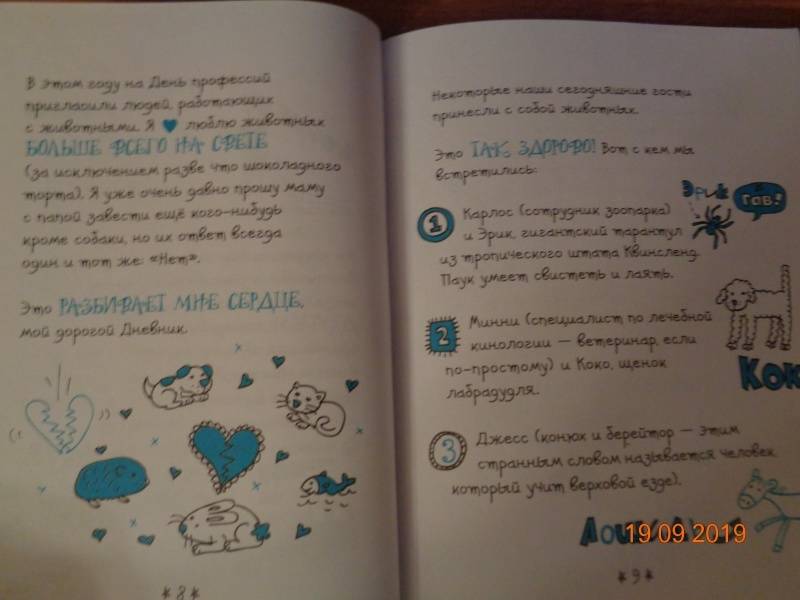 В этом году на День профессий
пригласили людей, работающих
с животными. Я люблю животных
БОЛЬШЕ ВСЕГО НА СВЕТЕ
(за исключением разве что шоколадного
торта). Я уже очень давно прошу маму
с папой завести ещё кого-нибудь
кроме собаки, но их ответ всегда
один и тот же: «Нет».
Это РАЗБИВАЕТ МНЕ СЕРДЦЕ,
мой дорогой Дневник.
*8*
Некоторые наши сегодняшние гости
принесли с собой животных.
Это ТАК ЗДОРОВО! Вот с кем мы
встретились:
Эрик
гав!
1 Карлос (сотрудник зоопарка)
и Эрик, гигантский тарантул
из тропического штата Квинсленд.
Паук умеет свистеть и лаять.
2 Минни (специалист по лечебной
кинологии — ветеринар, если
по-простому) и Коко, щенок
лабрадудля.
КОК
3 Джесс (конюх и берейтор — этим
странным словом называется человек,
который учит верховой езде).
19 09 2019
*9*